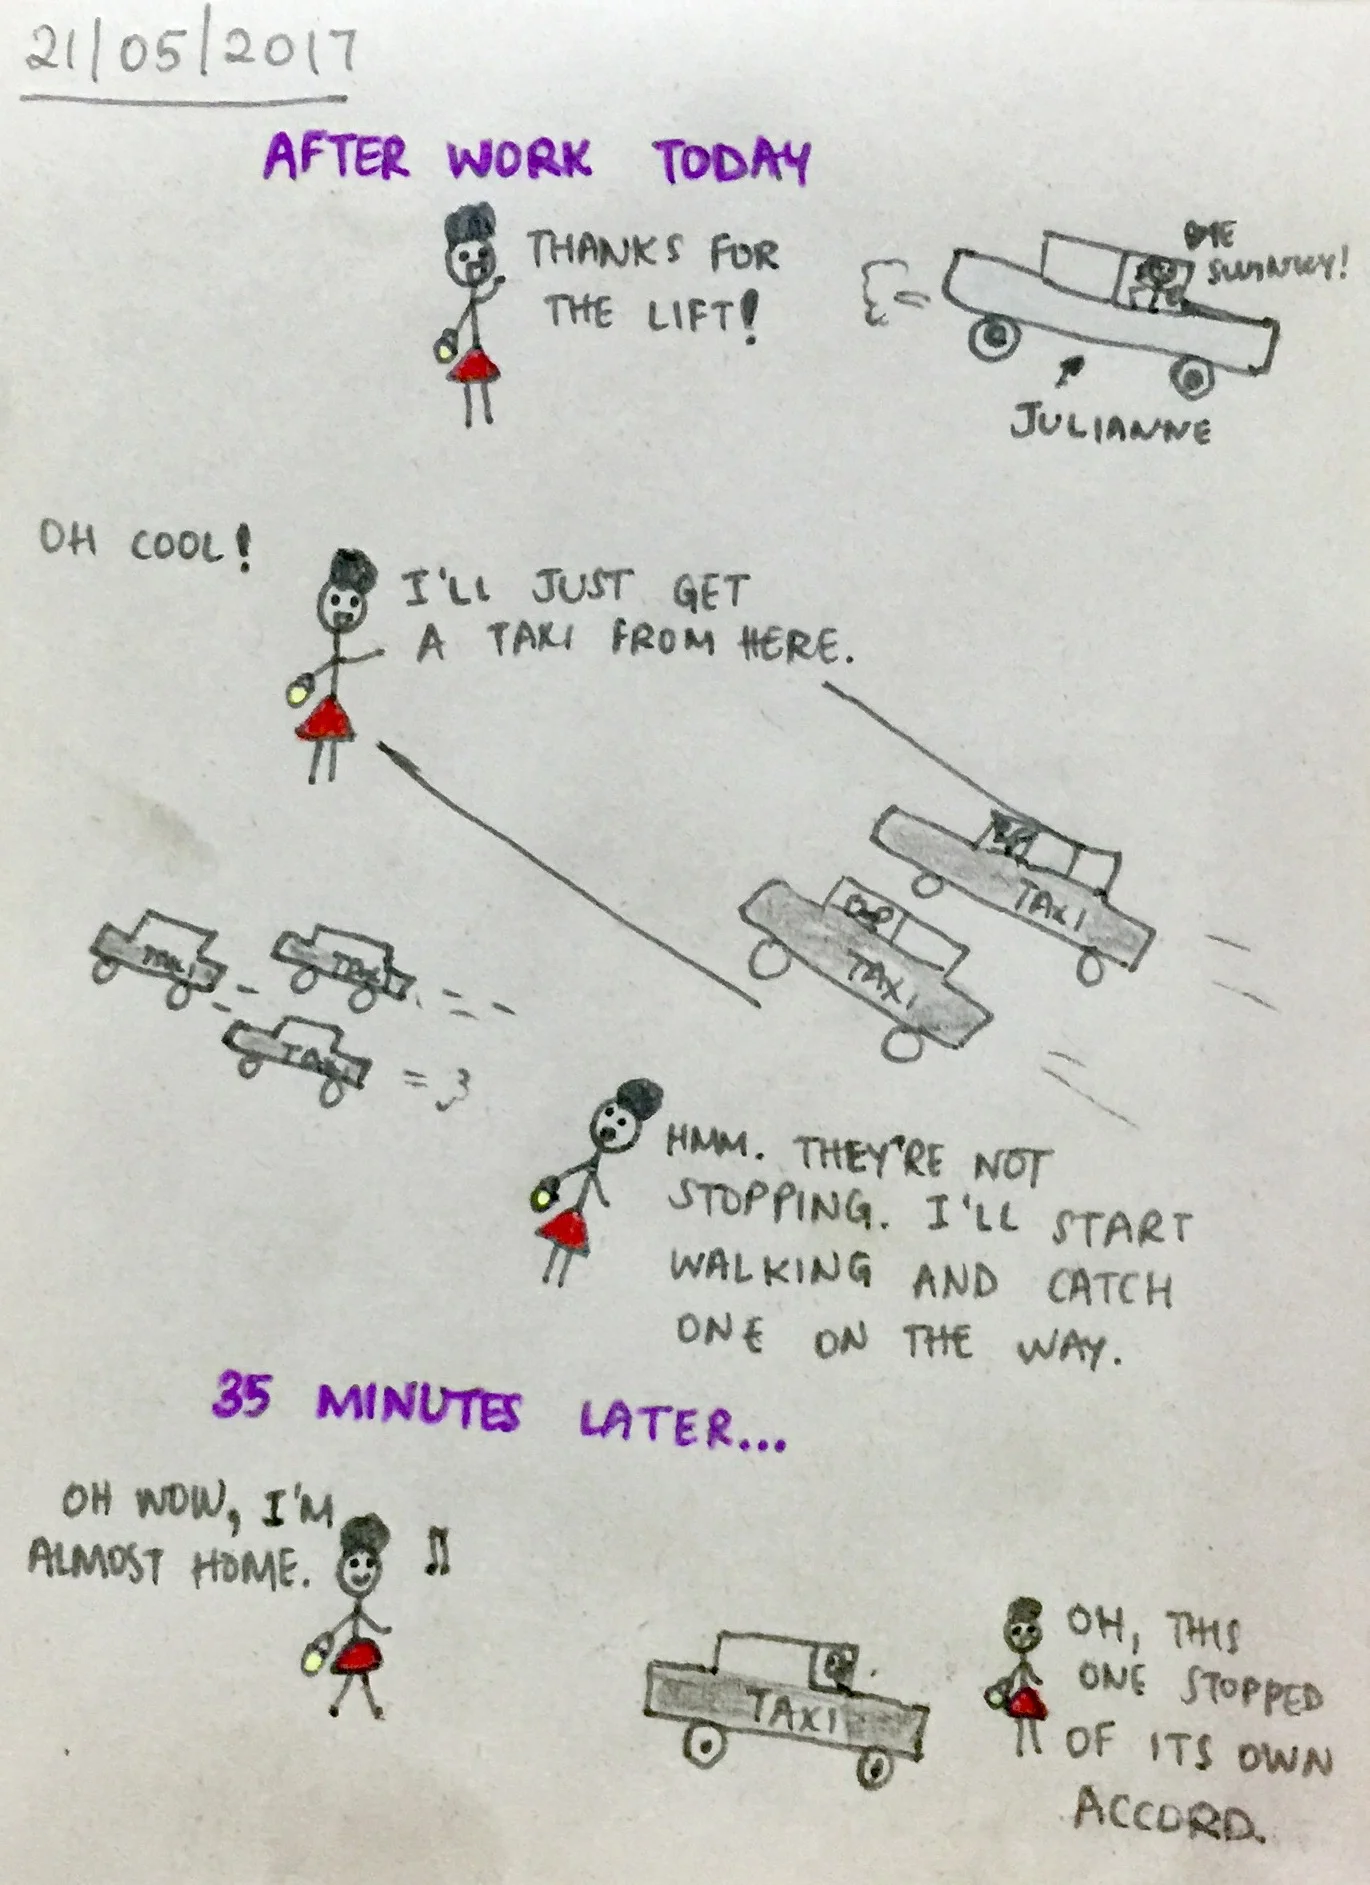 21/05/2017
AFTER WORK TODAY
THANKS FOR
THE LIFT!
BYE
SWINKY!
JULIANNE
OH COOL!
I'LL JUST GET
A TAXI FROM HERE.
TAXI
TAXI
TAXI
TAXI
TAXI
HMM. THEY'RE NOT
STOPPING. I'LL START
WALKING AND CATCH
ONE ON THE WAY.
35 MINUTES LATER...
OH WOW, I'M
ALMOST HOME.
TAXI
OH, THIS
ONE STOPPED
OF ITS OWN
ACCORD.